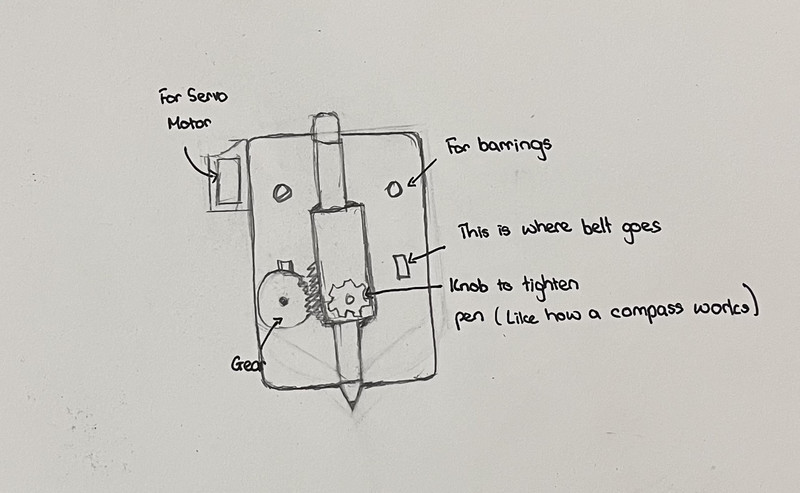 For Servo
Motor
For barrings
This is where belt goes
Knob to tighten
pen (Like how a compass works)
Gear